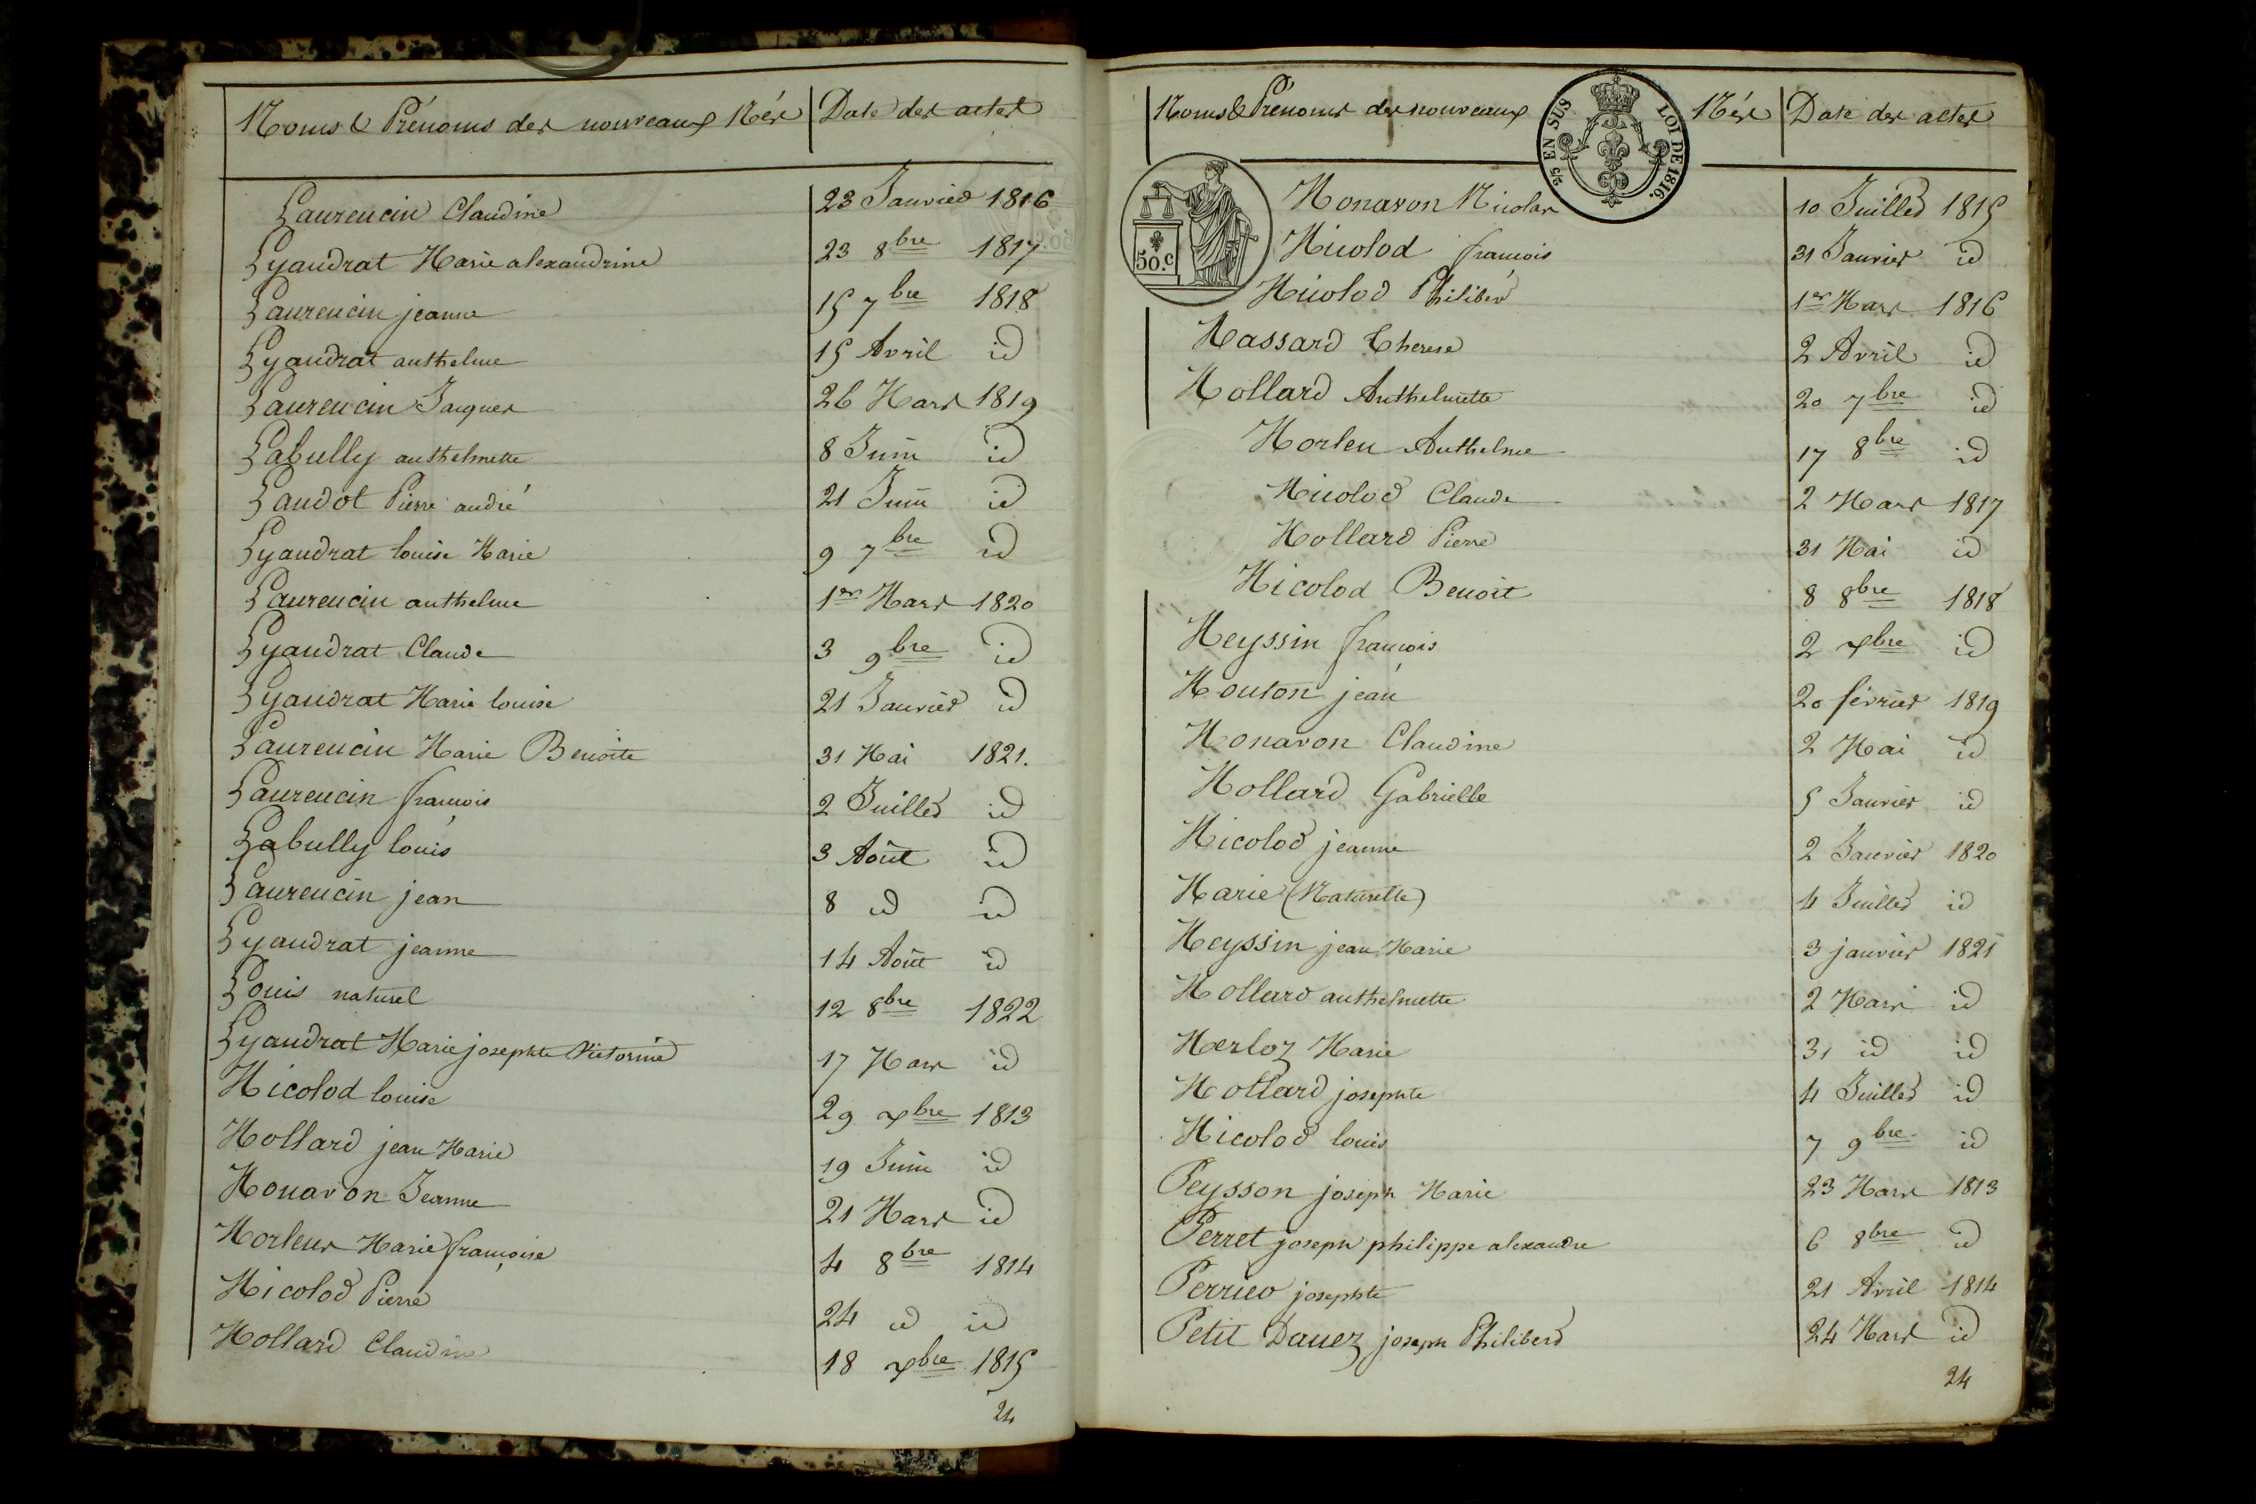 Noms & Prénoms des nouveaux Nés | Date des actes
Laurencin Claudine 23 Janvier 1816
Lyaudrat Marie alexandrine 23 8bre 1817
Laurencin jeanne 15 7bre 1818
Lyaudrat anthelme 15 Avril id
Laurencin Jacques 26 Mars 1819
Labully anthelmette 8 Juin id
Laudot Pierre andré 21 Juin id
Lyaudrat louise Marie 9 7bre id
Laurencin anthelme 1er Mars 1820
Lyaudrat Claude 3 9bre id
Lyaudrat Marie louise 21 Janvier id
Laurencin Marie Benoite 31 Mai 1821.
Laurencin francois 2 Juillet id
Labully louis 3 Août id
Laurencin jean 8 id id
Lyaudrat jeanne 14 Août id
Louis naturel 12 8bre 1822
Lyaudrat Marie josephte Victorine 17 Mars id
Micolod louise 29 xbre 1813
Mollard jean Marie 19 Juin id
Monavon Jeanne 21 Mars id
Morleur Marie françoise 4 8bre 1814
Micolod Pierre 24 id id
Mollard Claudine 18 xbre 1815
24
Noms & Prénoms des nouveaux Nés | Date des actes
25 EN SUS LOI DE 1816.
50.c
Monavon Nicolas 10 Juillet 1815
Micolod francois 31 Janvier id
Micolod Philiber 1er Mars 1816
Massard Therese 2 Avril id
Mollard Anthelmette 20 7bre id
Morleu Anthelme 17 8bre id
Micolod Claude 2 Mars 1817
Mollard Pierre 31 Mai id
Micolod Benoit 8 8bre 1818
Meyssin francois 2 xbre id
Mouton jean 20 février 1819
Monavon Claudine 2 Mai id
Mollard Gabrielle 5 Janvier id
Micolod jeanne 2 Janvier 1820
Marie (Naturelle) 4 Juillet id
Meyssin jean Marie 3 janvier 1821
Mollard anthelmette 2 Mars id
Merloz Marie 31 id id
Mollard josephte 4 Juillet id
Micolod louis 7 9bre id
Peysson joseph Marie 23 Mars 1813
Perret joseph philippe alexandre 6 8bre id
Perrier josephte 21 Avril 1814
Petit Dauez joseph Philiberd 24 Mars id
24